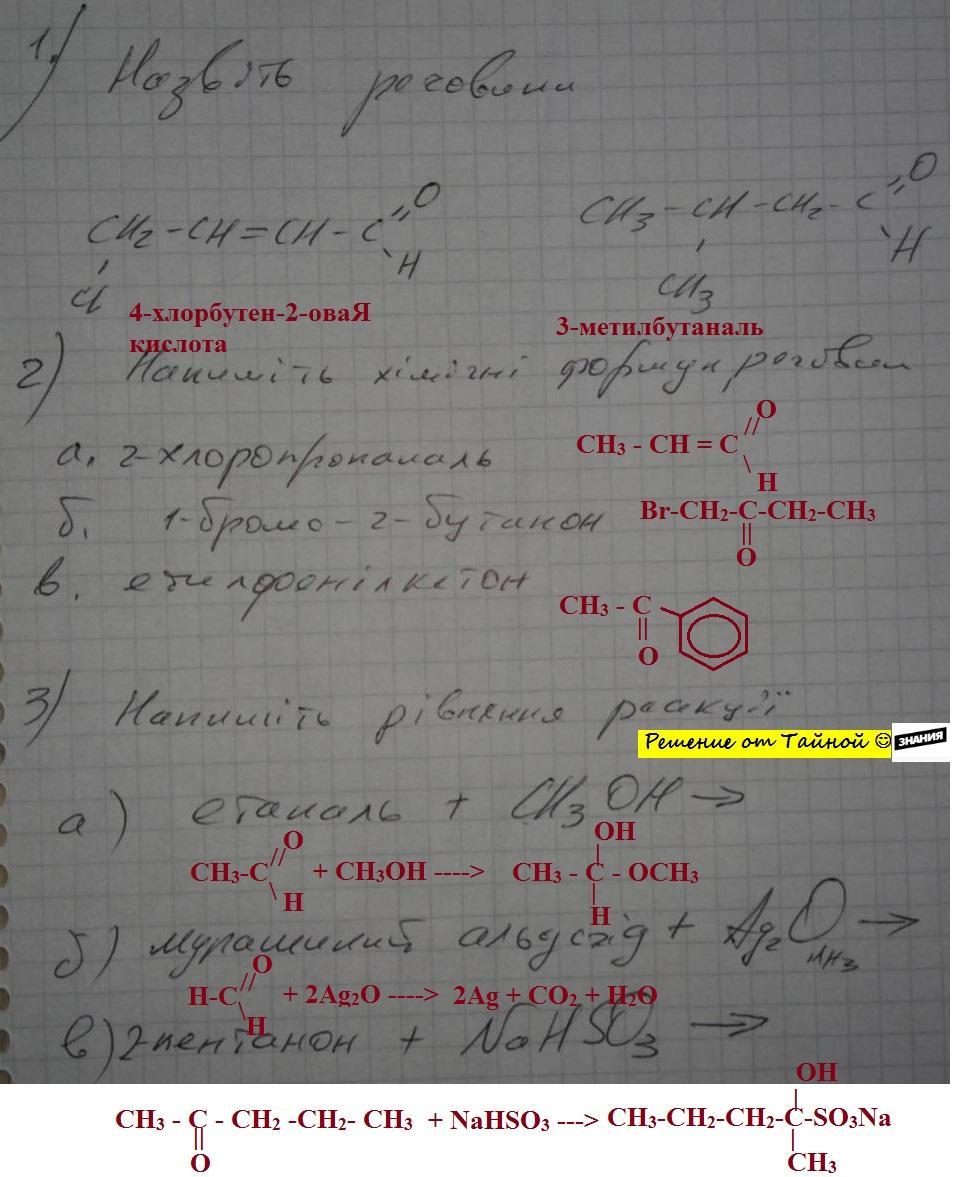 1) Назвіть речовини
CH2-CH=CH-C=O
H
Cl
CH3-CH-CH2-C=O
H
CH3
4-хлорбутен-2-оваЯ
кислота
3-метилбутаналь
2) Напишіть хімічні формули речовин
а. 2-хлоропропаналь
CH3 - CH = C
O
H
б. 1-бромо-2-бутанон
Br-CH2-C-CH2-CH3
O
в. етилфенілкетон
CH3 - C
O
3) Напишіть рівняння реакції
Решение от Тайной
ЗНАНИЯ
а) етаналь + CH3OH →
O
OH
CH3-C + CH3OH ----> CH3 - C - OCH3
H
H
б) мурашиний альдегід + Ag2O →
NH3
O
H-C + 2Ag2O ----> 2Ag + CO2 + H2O
H
в) 2-пентанон + NaHSO3 →
OH
CH3 - C - CH2 -CH2- CH3 + NaHSO3 ---> CH3-CH2-CH2-C-SO3Na
O
CH3